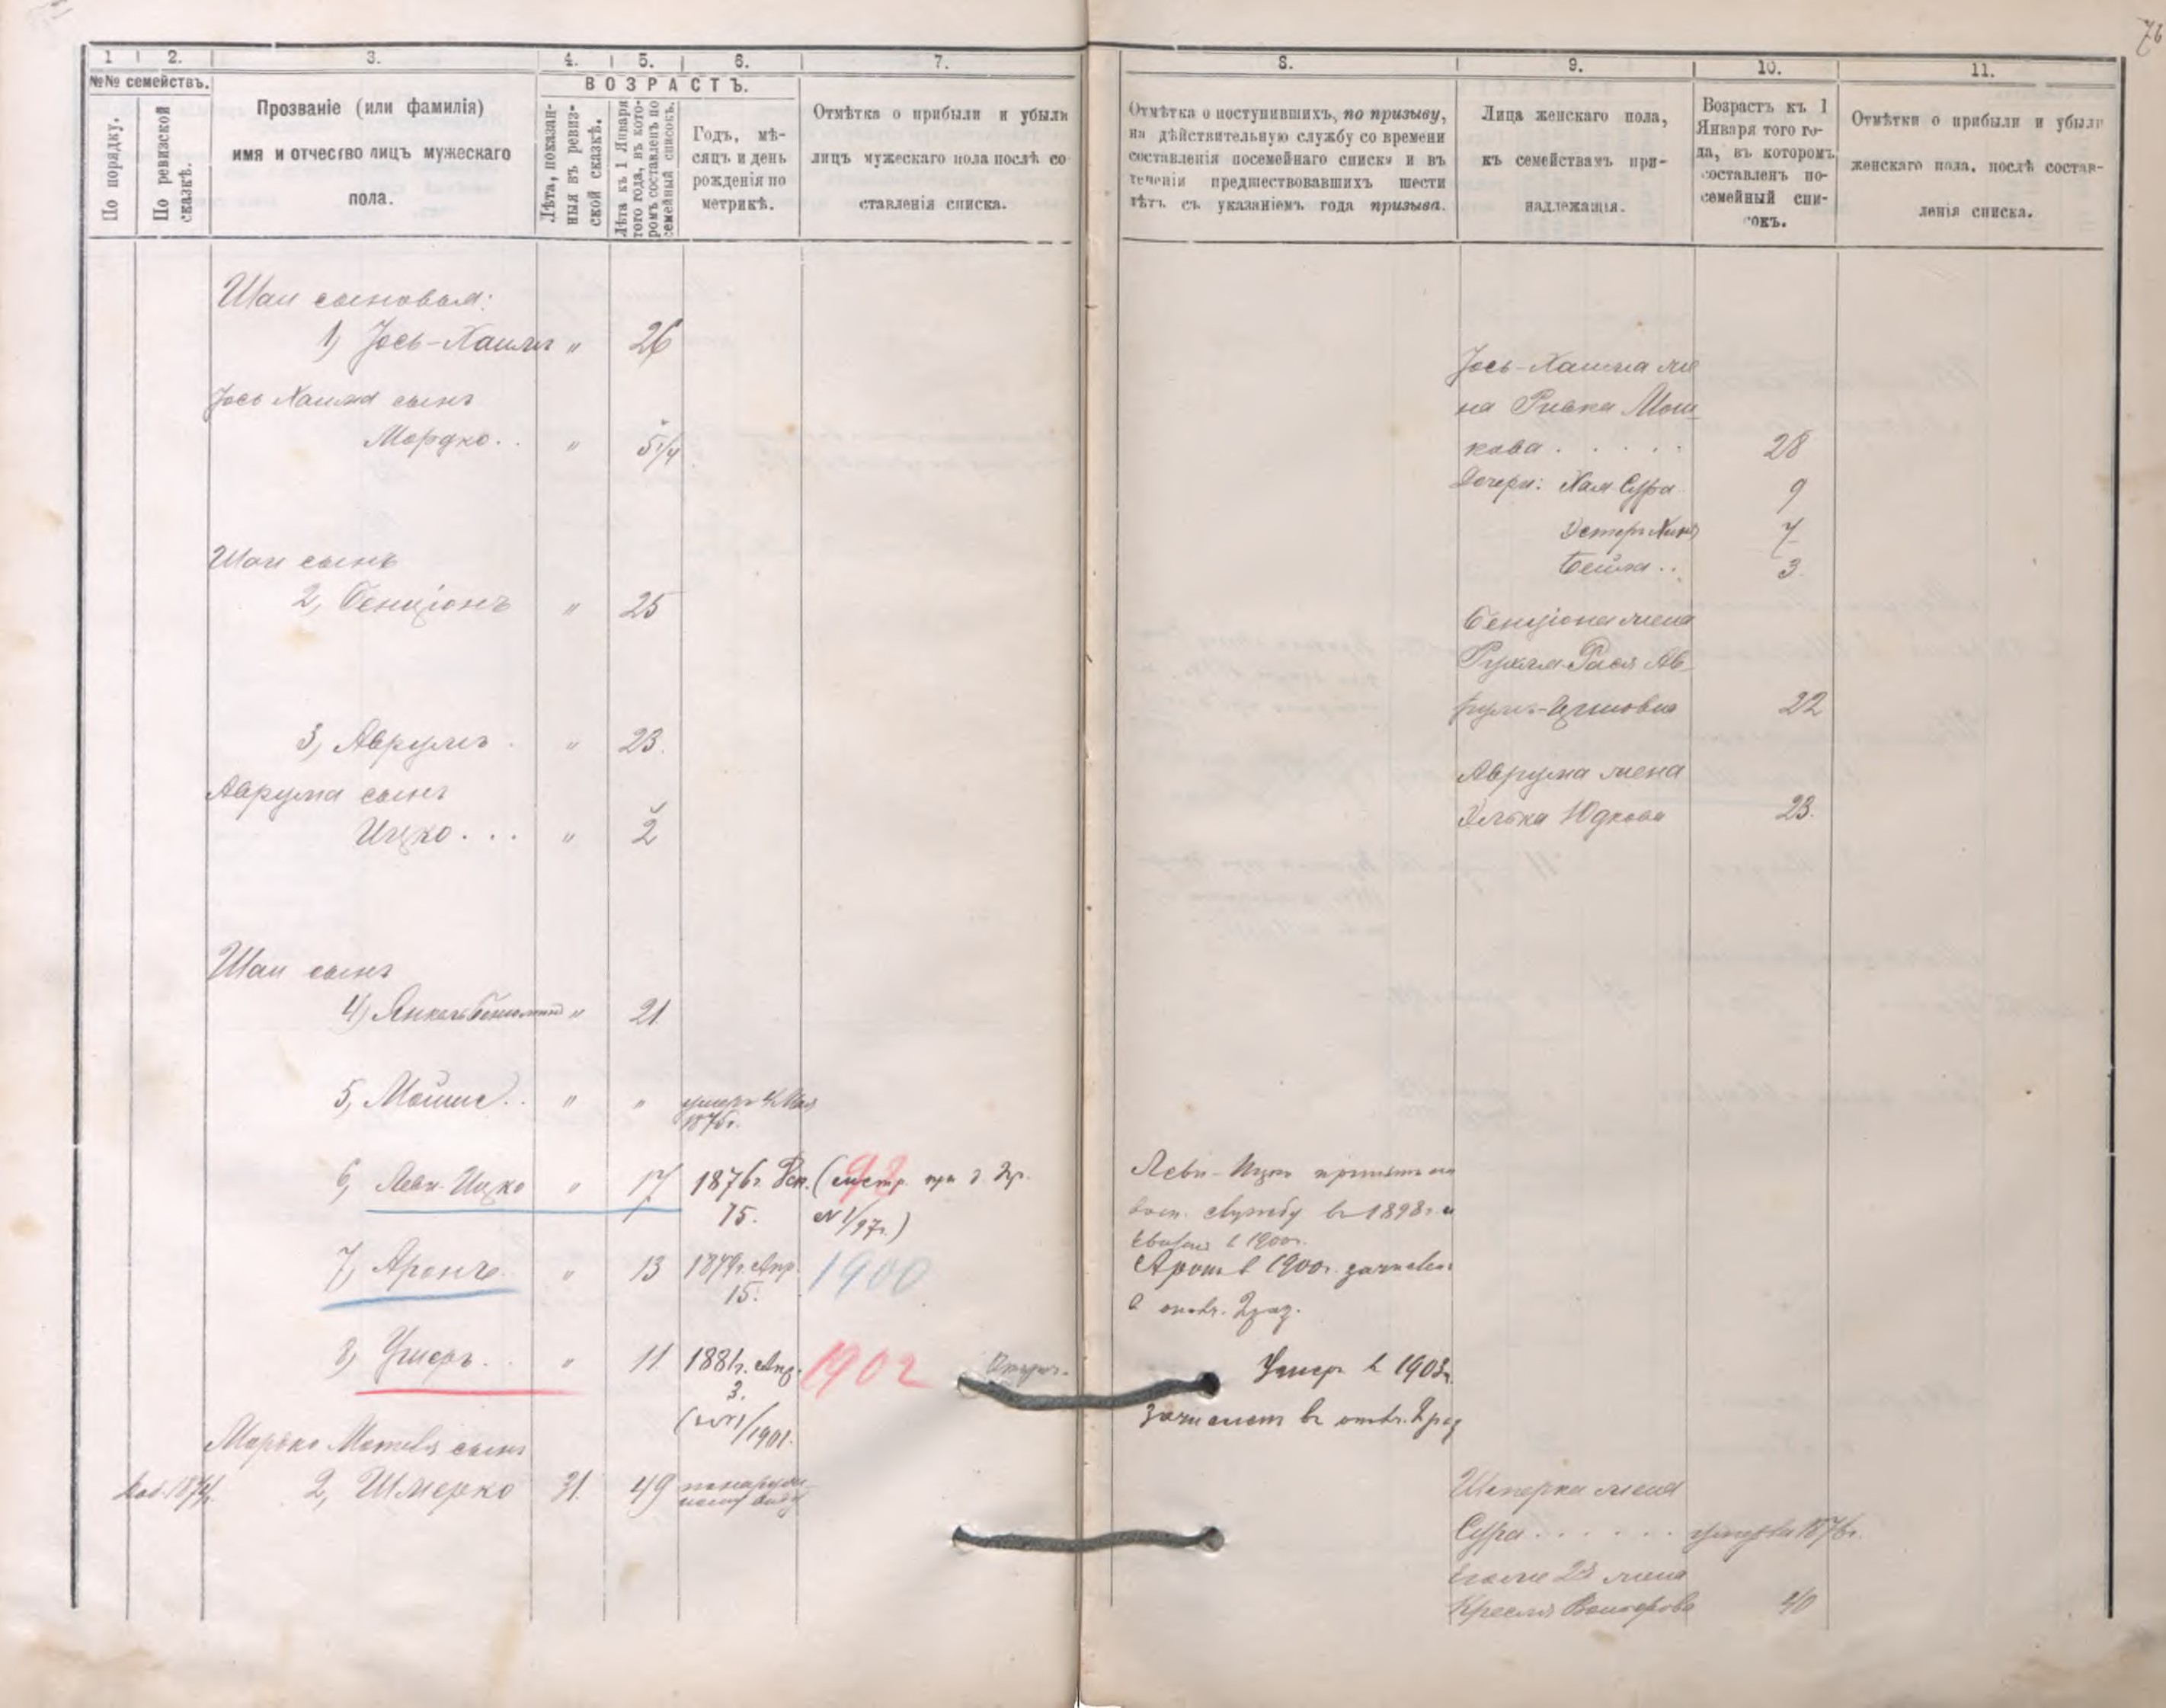 76
1 2. 3. 4. 5. 6. 7.
№№ семействъ.
По порядку.
По ревизской сказкѣ.
Прозваніе (или фамилія)
имя и отчество лицъ мужескаго
пола.
ВОЗРАСТЪ.
Лѣта, показан-
ныя въ ревиз-
ской сказкѣ.
Лѣта къ 1 Января
того года, въ кото-
ромъ составленъ по
семейный списокъ.
Годъ, мѣ-
сяцъ и день
рожденія по
метрикѣ.
Отмѣтка о прибыли и убыли
лицъ мужескаго пола послѣ со-
ставленія списка.
Шаи сыновья:
1) Іось-Хаимъ " 26
Іось Хаима сынъ
Мордко.. " 5 1/4
Шаи сынъ
2, Бенціонъ " 25
3, Аврумъ. " 23.
Аврума сынъ
Ицко... " 2
Шаи сынъ
4) Янкель Беньоминъ " 21
5, Мойше.. " " умеръ 4 Мая
1875г.
6, Леви-Ицко " 17 1876г. Дек. 98 (метр. при д. Зр.
15. №1/97г.)
7) Аронъ. " 13 1879г. Апр. 1900
15.
8) Ушеръ.. " 11 1881г. Апр. 1902
3.
1/1901.
Мордко Мотеля сынъ
1874г. 2, Шмерко 31. 49 по наруж-
ному виду
8. 9. 10. 11.
Отмѣтка о поступившихъ, по призыву,
на дѣйствительную службу со времени
составленія посемейнаго списка и въ
теченіи предшествовавшихъ шести
лѣтъ съ указаніемъ года призыва.
Лица женскаго пола,
къ семействамъ при-
надлежащія.
Возрастъ къ 1
Января того го-
да, въ которомъ
составленъ по-
семейный спи-
сокъ.
Отмѣтки о прибыли и убыли
женскаго пола, послѣ состав-
ленія списка.
Іось-Хаима же
на Ривка Мош-
кова..... 28
Дочери: Хая-Сура 9
Эстеръ Хина 7
Бейла.. 3
Бенціона жена
Рухля-Рася Ав-
румъ-Ицковна 22
Аврума жена
Элька Юдкова 23.
Леви-Ицко принятъ на
воен. службу въ 1898г. и
в 1900г.
Аронъ в 1900г. зачислен
в ополч. 2 раз.
Умеръ в 1903г.
Зачисленъ въ ополч. 2 раз
Шмерки жена
Сура...... умерла 1876г.
Его же 2я жена
Крейля 40